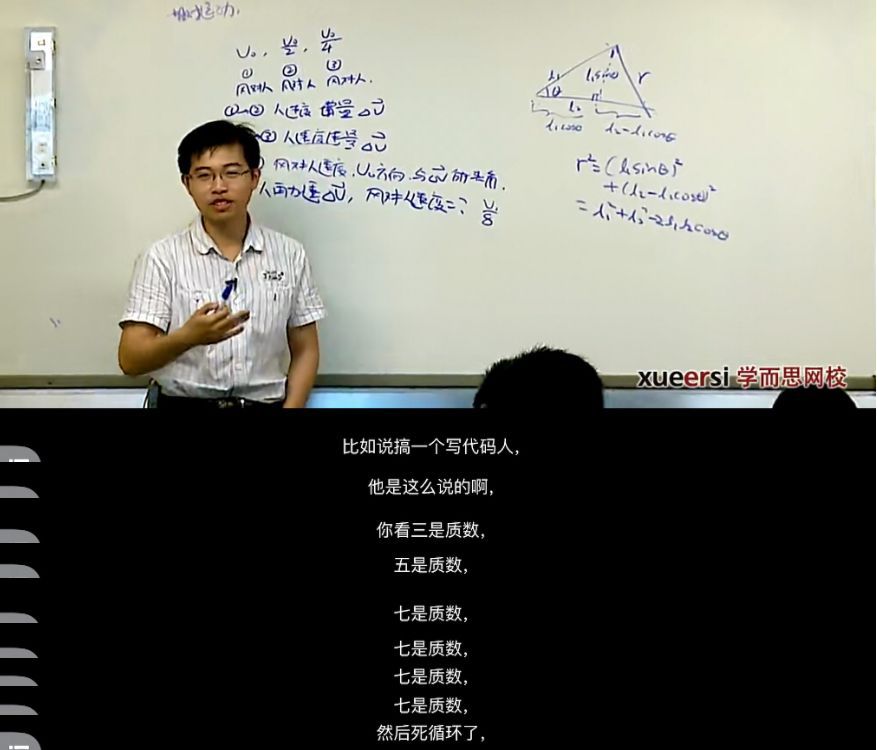 相对运动.
υ₀, υ₀/2, υ₀/4
① ② ③
风对人 风对人 风对人.
①→② 人速度 增量 Δv⃗
②人速度增量 Δv⃗
风对人速度, υ₀方向 与Δv⃗ 的夹角.
人再加速Δv⃗, 风对人速度=? υ₀/8
l₁ l₁sinθ r
θ
l₂
l₁cosθ l₂-l₁cosθ
r²=(l₁sinθ)²
+(l₂-l₁cosθ)²
=l₁²+l₂²-2l₁l₂cosθ
xueersi 学而思网校
比如说搞一个写代码人,
他是这么说的啊,
你看三是质数,
五是质数,
七是质数,
七是质数,
七是质数,
七是质数,
然后死循环了,